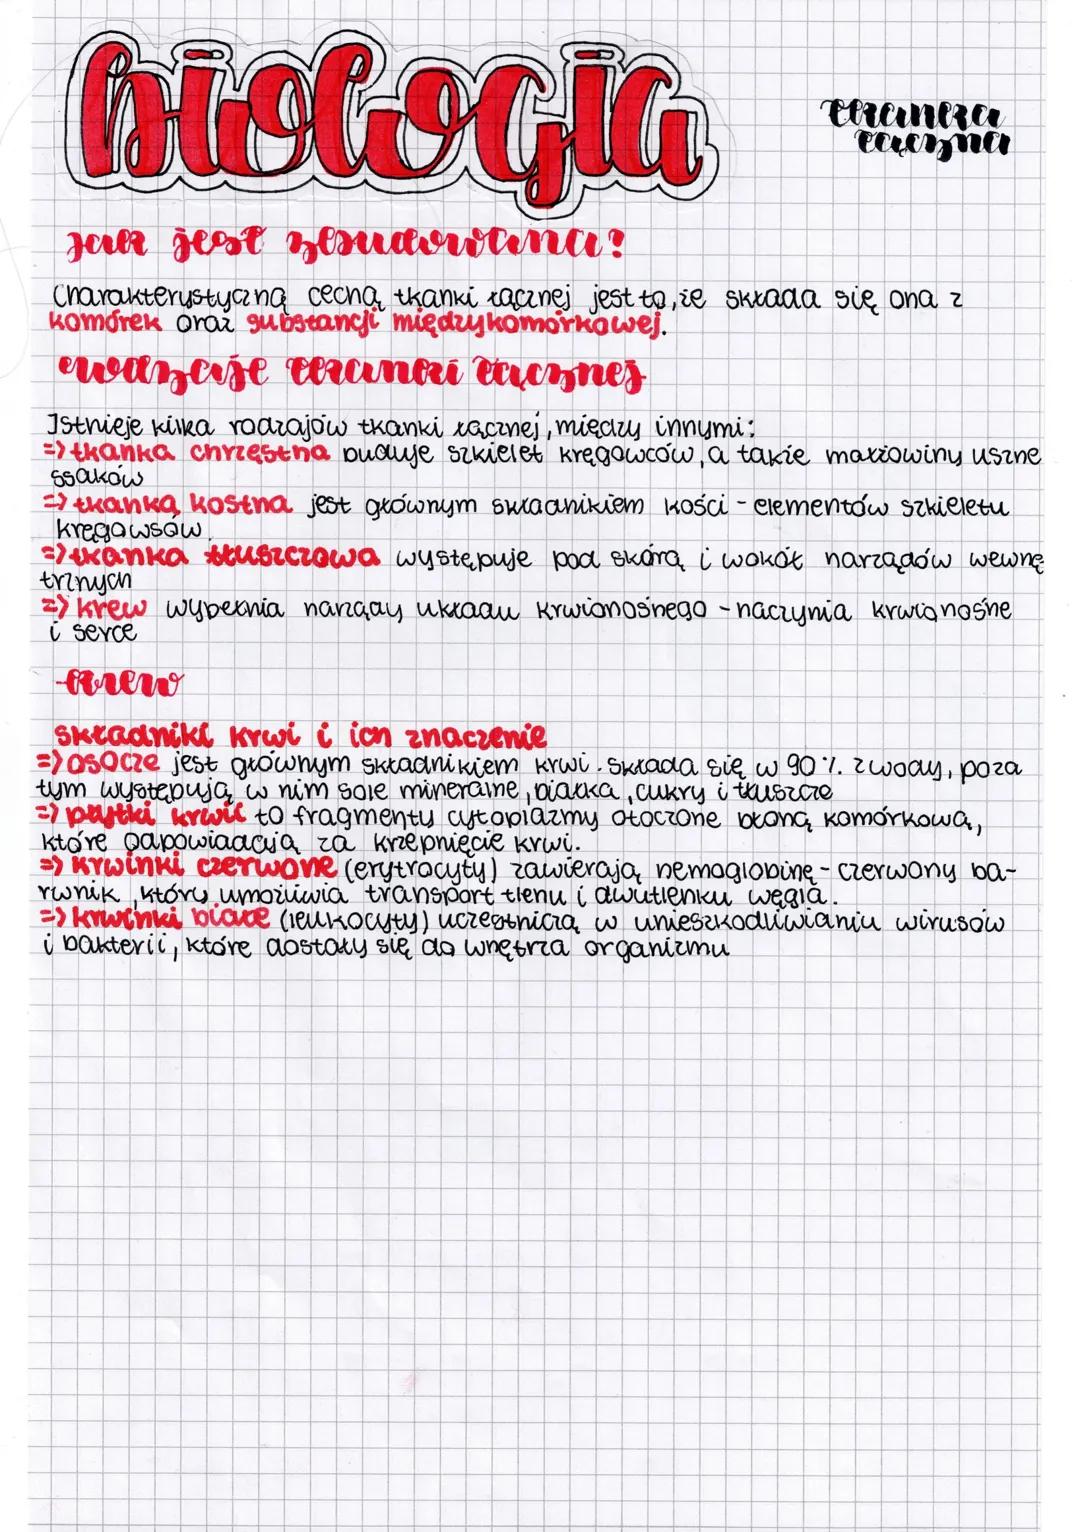 biologia
tkanka
łączna
jak jest zbudowana?
Charakterystyczną cechą tkanki łącznej jest to, że składa się ona z
komórek oraz substancji międzykomórkowej.
rodzaje tkanki łącznej
Istnieje kilka rodzajów tkanki łącznej, między innymi:
=> tkanka chrzęstna buduje szkielet kręgowców, a także małżowiny uszne
ssaków
=> tkanką kostna jest głównym składnikiem kości - elementów szkieletu
kręgowsów.
=> tkanka tłuszczowa występuje pod skórą i wokół narządów wewnę
trznych
=> krew wypełnia narządy układu krwionośnego - naczynia krwionośne
i serce
-krew
składniki krwi i ich znaczenie
=> osocze jest głównym składnikiem krwi. Składa się w 90% z wody, poza
tym występują w nim sole mineralne, białka, cukry i tłuszcze
=> płytki krwii to fragmenty cytoplazmy otoczone błoną komórkową,
które odpowiadają za krzepnięcie krwi.
=> krwinki czerwone (erytrocyty) zawierają hemoglobinę - czerwony ba-
rwnik, który umożliwia transport tlenu i dwutlenku węgla.
=> krwinki białe (leukocyty) uczestniczą w unieszkodliwianiu wirusów
i bakterii, które dostały się do wnętrza organizmu